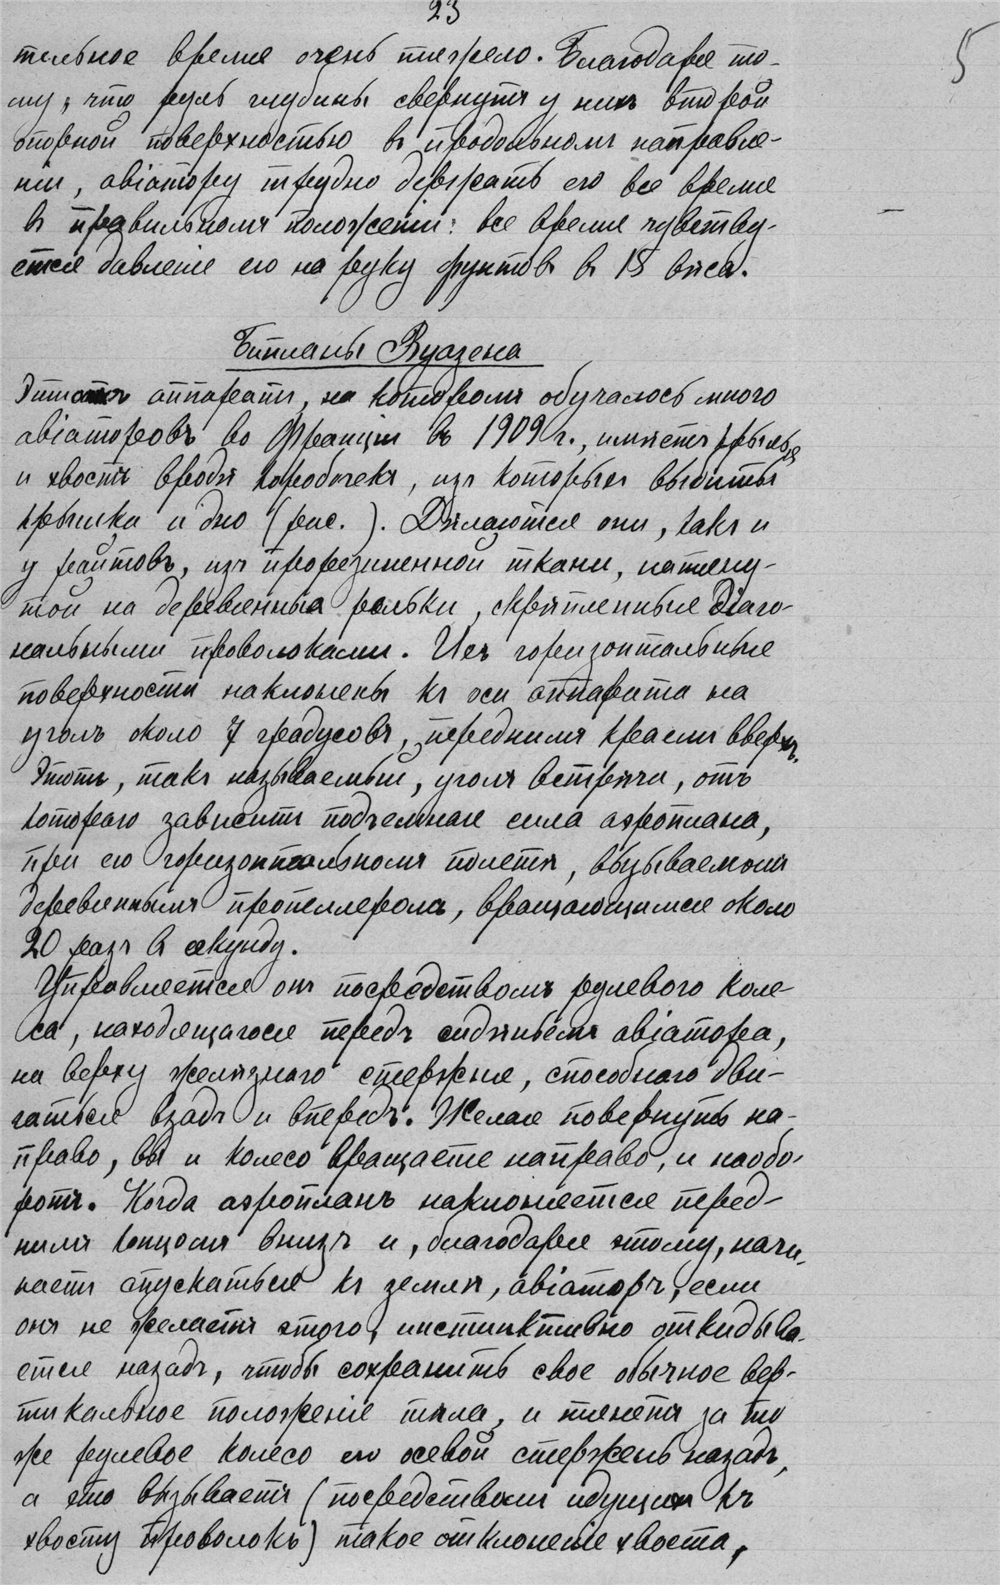 23
5
тельное время очень тяжело. Благодаря то-
му, что руль глубины свернутъ у нихъ второй
опорной поверхностью въ продольномъ направле-
ніи, авіатору трудно держать его все время
въ правильномъ положеніи: все время чувству-
ется давленіе его на руку фунтовъ въ 15 вѣса.
Бипланы Вуазена
аппаратъ, на которомъ обучалось много
авіаторовъ во Франціи въ 1909 г., имѣетъ крылья
и хвостъ вродѣ коробочекъ, изъ которыхъ выбиты
крышка и дно (рис. ). Дѣлаются они, какъ и
у райтовъ, изъ прорезиненной ткани, натяну-
той на деревянныя рельки, скрѣпленные діаго-
нальными проволоками. Ихъ горизонтальные
поверхности наклонены къ оси аппарата на
уголъ около 7 градусовъ, переднимъ краемъ вверхъ.
Этотъ, такъ называемый, уголъ встрѣчи, отъ
котораго зависитъ подъемная сила аэроплана,
при его горизонтальномъ полетѣ, вызываемомъ
деревяннымъ пропеллеромъ, вращающимся около
20 разъ въ секунду.
Управляется онъ посредствомъ рулевого коле-
са, находящагося передъ сидѣньемъ авіатора,
на верху желѣзнаго стержня, способнаго дви-
гаться взадъ и впередъ. Желая повернуть на-
право, вы и колесо вращаете направо, и наобо-
ротъ. Когда аэропланъ наклоняется перед-
нимъ концомъ внизъ и, благодаря этому, начи-
наетъ опускаться къ землѣ, авіаторъ, если
онъ не желаетъ этого, инстинктивно откидыва-
ется назадъ, чтобы сохранить свое обычное вер-
тикальное положеніе тѣла, и тянетъ за то
же рулевое колесо его осевой стержень назадъ,
а это вызываетъ (посредствомъ идущихъ къ
хвосту проволокъ) такое отклоненіе хвоста,